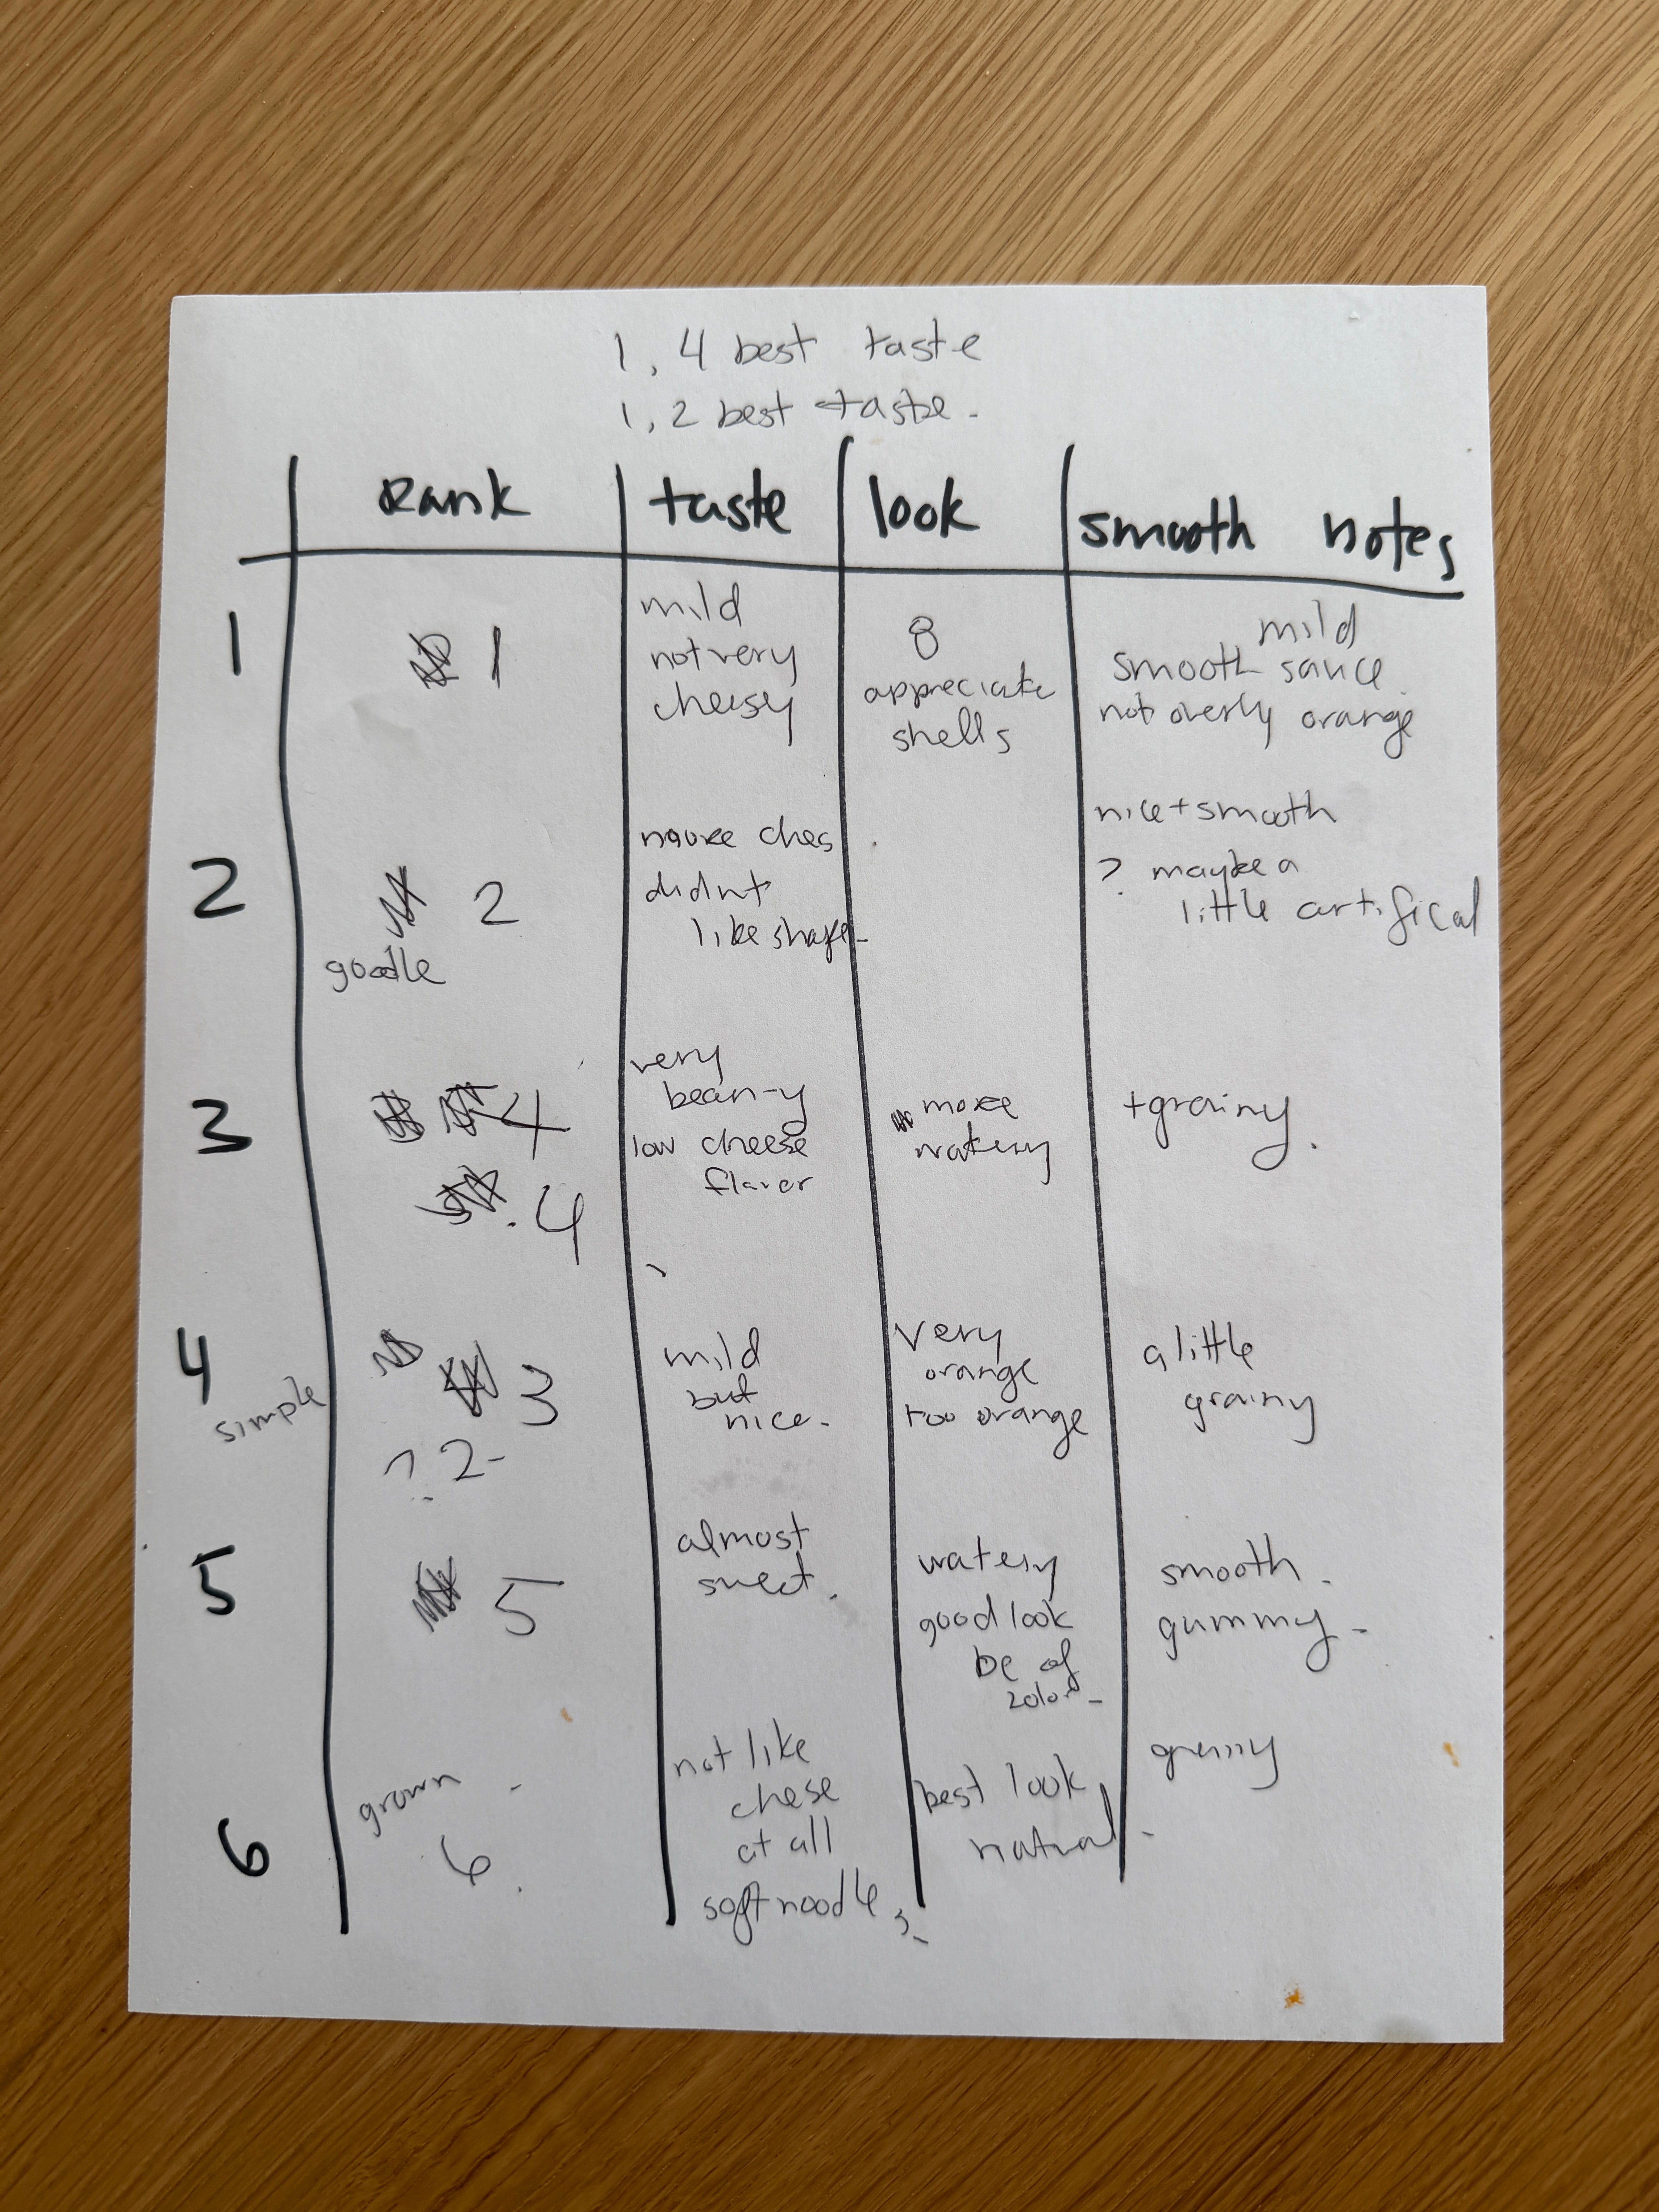 1, 4 best taste
1, 2 best taste.
Rank taste look smooth notes
1
1
mild
not very
cheesy
8
appreciate
shells
mild
smooth sauce
not overly orange
2
2
goodle
more ches
didnt
like shape
nice + smooth
? maybe a
little artifical
3
4
4
very
bean-y
low cheese
flavor
more
watery
+grainy.
4
simple
3
? 2-
mild
but
nice.
very
orange
too orange
a little
grainy
5
5
almost
sweet.
watery
good look
be of
color
smooth.
gummy-
6
grown -
6.
not like
chese
at all
soft noodle
best look
natural
grainy